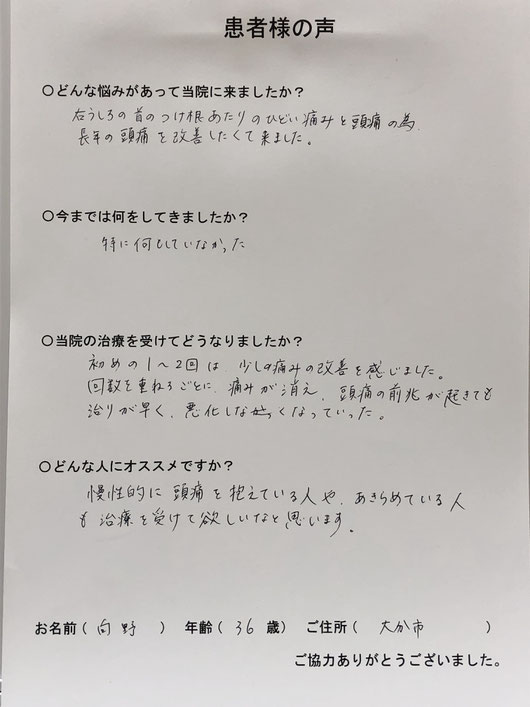 患者様の声
〇どんな悩みがあって当院に来ましたか？
右うしろの首のつけ根あたりのひどい痛みと頭痛の為、
長年の頭痛を改善したくて来ました。
〇今までは何をしてきましたか？
特に何もしていなかった
〇当院の治療を受けてどうなりましたか？
初めの1〜2回は、少しの痛みの改善を感じました。
回数を重ねるごとに、痛みが消え、頭痛の前兆が起きても
治りが早く、悪化しなくなっていった。
〇どんな人にオススメですか？
慢性的に頭痛を抱えている人や、あきらめている人
も治療を受けて欲しいなと思います。
お名前（ 向野 ） 年齢（ 36 歳） ご住所（ 大分市 ）
ご協力ありがとうございました。